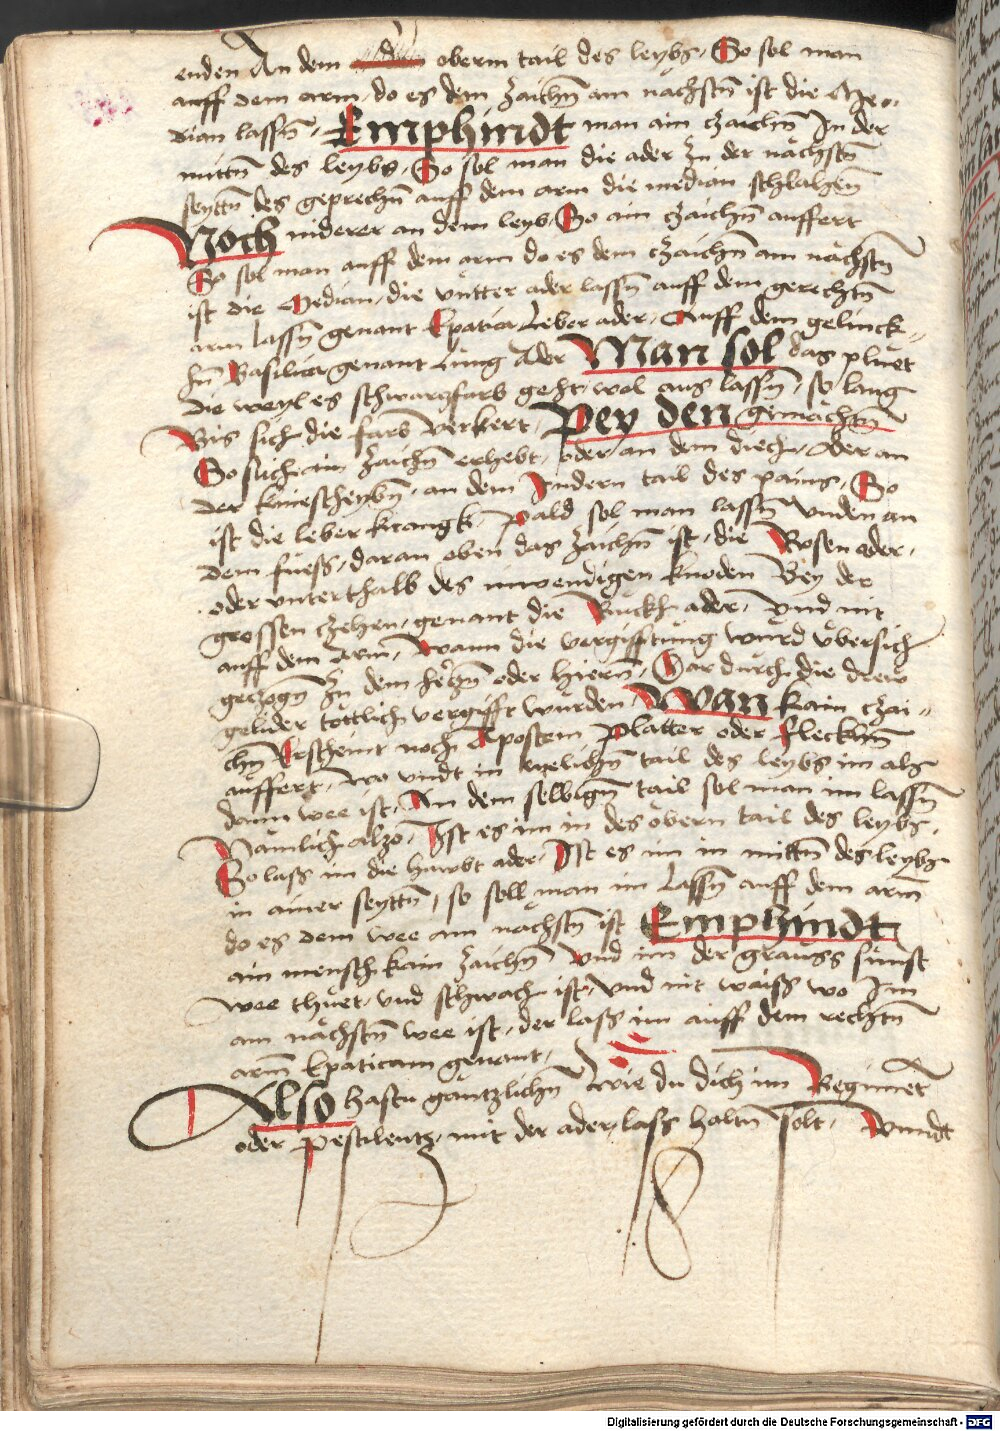 enden An dem oberm tail des leybs, So sol man
auff dem arm, do es dem zaichn̄ am nächstn̄ ist die Me-
dian lassn̄, Emphindt man ain czaichn̄ In der
mittn̄ des leybs, So sol man die ader In der nächstn̄
seyttn̄ des geprechn̄ auff dem arm die median schlahen
Noch niderer an dem leyb, So ain czaichn̄ auffert
So sol man auff dem arm do es dem czaichn̄ am nächstn̄
ist die Median, die vntter ader lassn̄ auff dem gerechtn̄
arm lassn̄ genant Epatica Leber ader, Auff dem gelinck-
hn̄ Basilica genant Lung Ader Man sol das pluet
die weyl es schwartzfarb geht, wol aus lassn̄, so lang
Bis sich die farb verkert, Pey den gemächtn̄
So sich ain zaichn̄ erhebt, oder an dem diech, Oder an
der kniescheybn̄, an dem Indern tail des pains, So
ist die leber krangk, Pald sol man lassn̄ vnden an
dem fueß, daran oben das zaichn̄ ist, die Rosen ader,
oder vnterthalb des inwendigen knoden Bey der
grossen czehen, genant die Rückh ader, Vnd nit
auff dem Arm, Wann die vergifftung wurd vbersich
geczogn̄ Zu dem herczn̄ oder hiern̄, Gar durch die drew
gelider töttlich vergifft wurden, Wan kain czai-
chn̄ Erscheint noch Apostem Platter oder fleckhn̄
auffert, Wo vndt in welichn̄ tail des leybs im alß
dann wee ist, An dem selbign̄ tail sol man im lassn̄
Nämlich alzo, Ist es im in des obern tail des leybs,
So lass im die hawbt ader, Ist es im in mittn̄ des leybs
in ainer seyttn̄, so soll man im Lassn̄ auff dem arm̄
do es dem wee am nächstn̄ ist Emphindt
ain mensch kain zaichn̄ Vnd im der grauss sünst
wee thuet, vnd schwach ist, Vnd nit waiss wo Im
am nächstn̄ wee ist, der lass im auff dem rechtn̄
arm̄ Epaticam genant,
Also hastu gäntzlichn̄ wie du dich im Regiment
oder pestilentz, mit der ader, lass haltn̄ solt, Vnndt
Digitalisierung gefördert durch die Deutsche Forschungsgemeinschaft - DFG